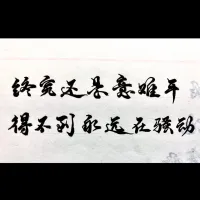 终究还是意难平
得不到永远在骚动